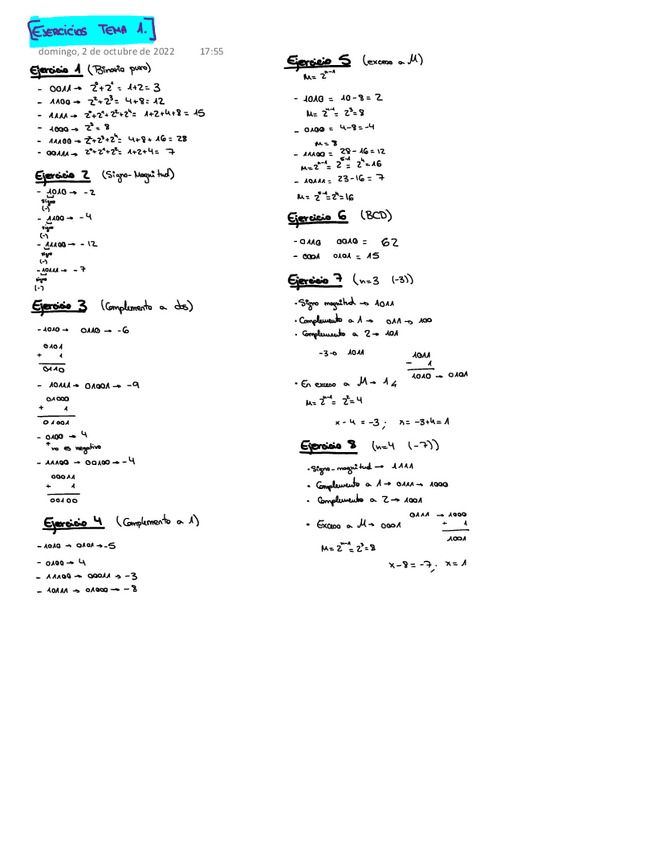 EJERCICIOS TEMA 1.
domingo, 2 de octubre de 2022 17:55
Ejercicio 1 (Binario puro)
- 0011 → 2⁰+2¹ = 1+2= 3
- 1100 → 2²+2³= 4+8= 12
- 1111 → 2⁰+2¹+2²+2³= 1+2+4+8 = 15
- 1000 → 2³ = 8
- 11100 → 2²+2³+2⁴= 4+8+16= 28
- 00111 → 2⁰+2¹+2²= 1+2+4= 7
Ejercicio 2 (Signo-Magnitud)
- 1010 → -2
signo
(-)
- 1100 → -4
signo
(-)
- 11100 → -12
signo
(-)
- 10111 → -7
signo
(-)
Ejercicio 3 (Complemento a dos)
- 1010 → 0110 → -6
0101
+ 1
0110
- 10111 → 01001 → -9
01000
+ 1
01001
- 0100 → 4
+ no es negativo
- 11100 → 00100 → -4
00011
+ 1
00100
Ejercicio 4 (Complemento a 1)
- 1010 → 0101 → -5
- 0100 → 4
- 11100 → 00011 → -3
- 10111 → 01000 → -8
Ejercicio 5 (exceso a M)
M= 2ⁿ⁻¹
- 1010 = 10-8 = 2
M= 2ⁿ⁻¹= 2³= 8
- 0100 = 4-8=-4
M= 8
- 11100 = 28-16=12
M=2ⁿ⁻¹= 2⁵⁻¹= 2⁴=16
- 10111 = 23-16= 7
M= 2⁵⁻¹=2⁴=16
Ejercicio 6 (BCD)
- 0110 0010 = 62
- 0001 0101 = 15
Ejercicio 7 (n=3 (-3))
· Signo magnitud → 1011
· Complemento a 1 → 011 → 100
· Complemento a 2 → 101
-3 → 1011
1011
- 1
1010 → 0101
· En exceso a M → 1
M= 2ⁿ⁻¹= 2²=4
x-4 = -3 ; x= -3+4= 1
Ejercicio 8 (n=4 (-7))
· Signo-magnitud → 1111
· Complemento a 1 → 0111 → 1000
· Complemento a 2 → 1001
0111 → 1000
+ 1
1001
· Exceso a M → 0001
M= 2ⁿ⁻¹= 2³= 8
x-8 = -7; x= 1